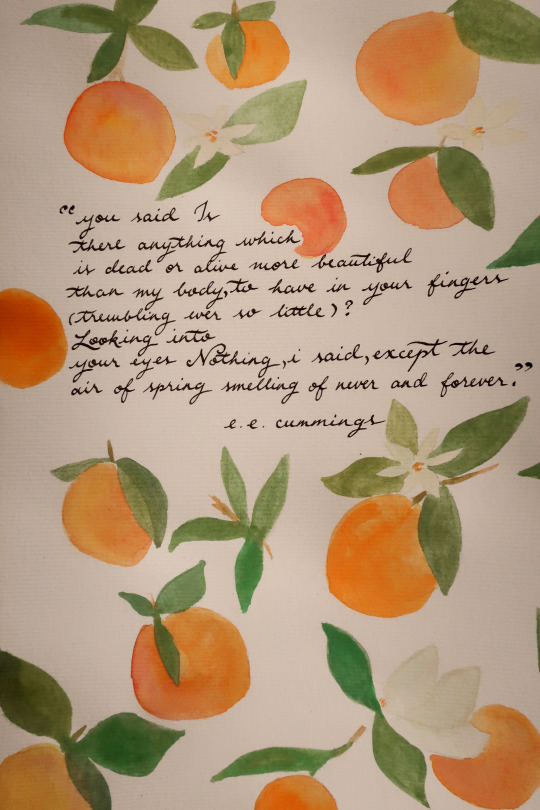 “you said Is
there anything which
is dead or alive more beautiful
than my body,to have in your fingers
(trembling ever so little)?
Looking into
your eyes Nothing,i said,except the
air of spring smelling of never and forever.”
e.e. cummings